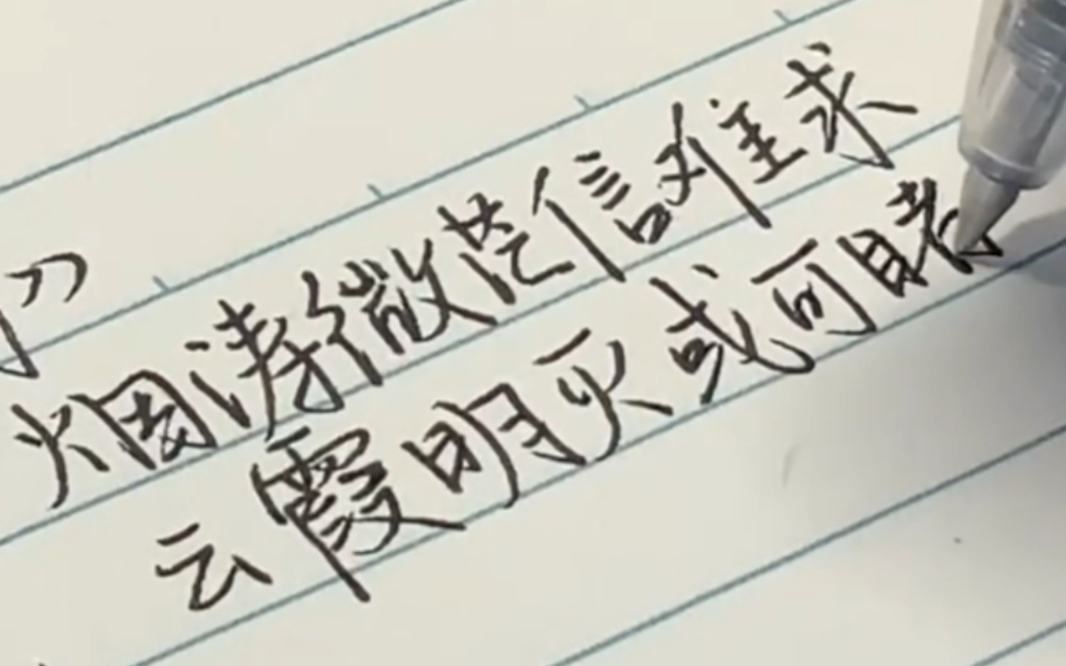 》
烟涛微茫信难求
云霞明灭或可睹